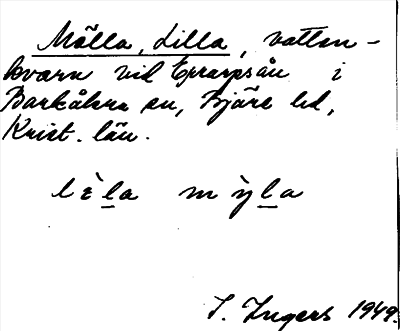 Mölla, Lilla, vatten-
kvarn vid Örarpsån i
Barkåkra sn, Bjäre hd,
Krist. län.
lèla mỳla
I. Ingers 1949.